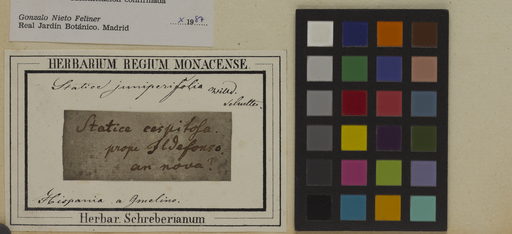 confirmada
Gonzalo Nieto Feliner
Real Jardín Botánico. Madrid
X.1987
HERBARIUM REGIUM MONACENSE.
Statice juniperifolia Willd.
Statice cespitosa.
prope Ildefonso.
an nova?
Hispania a Gmelino.
Herbar. Schreberianum